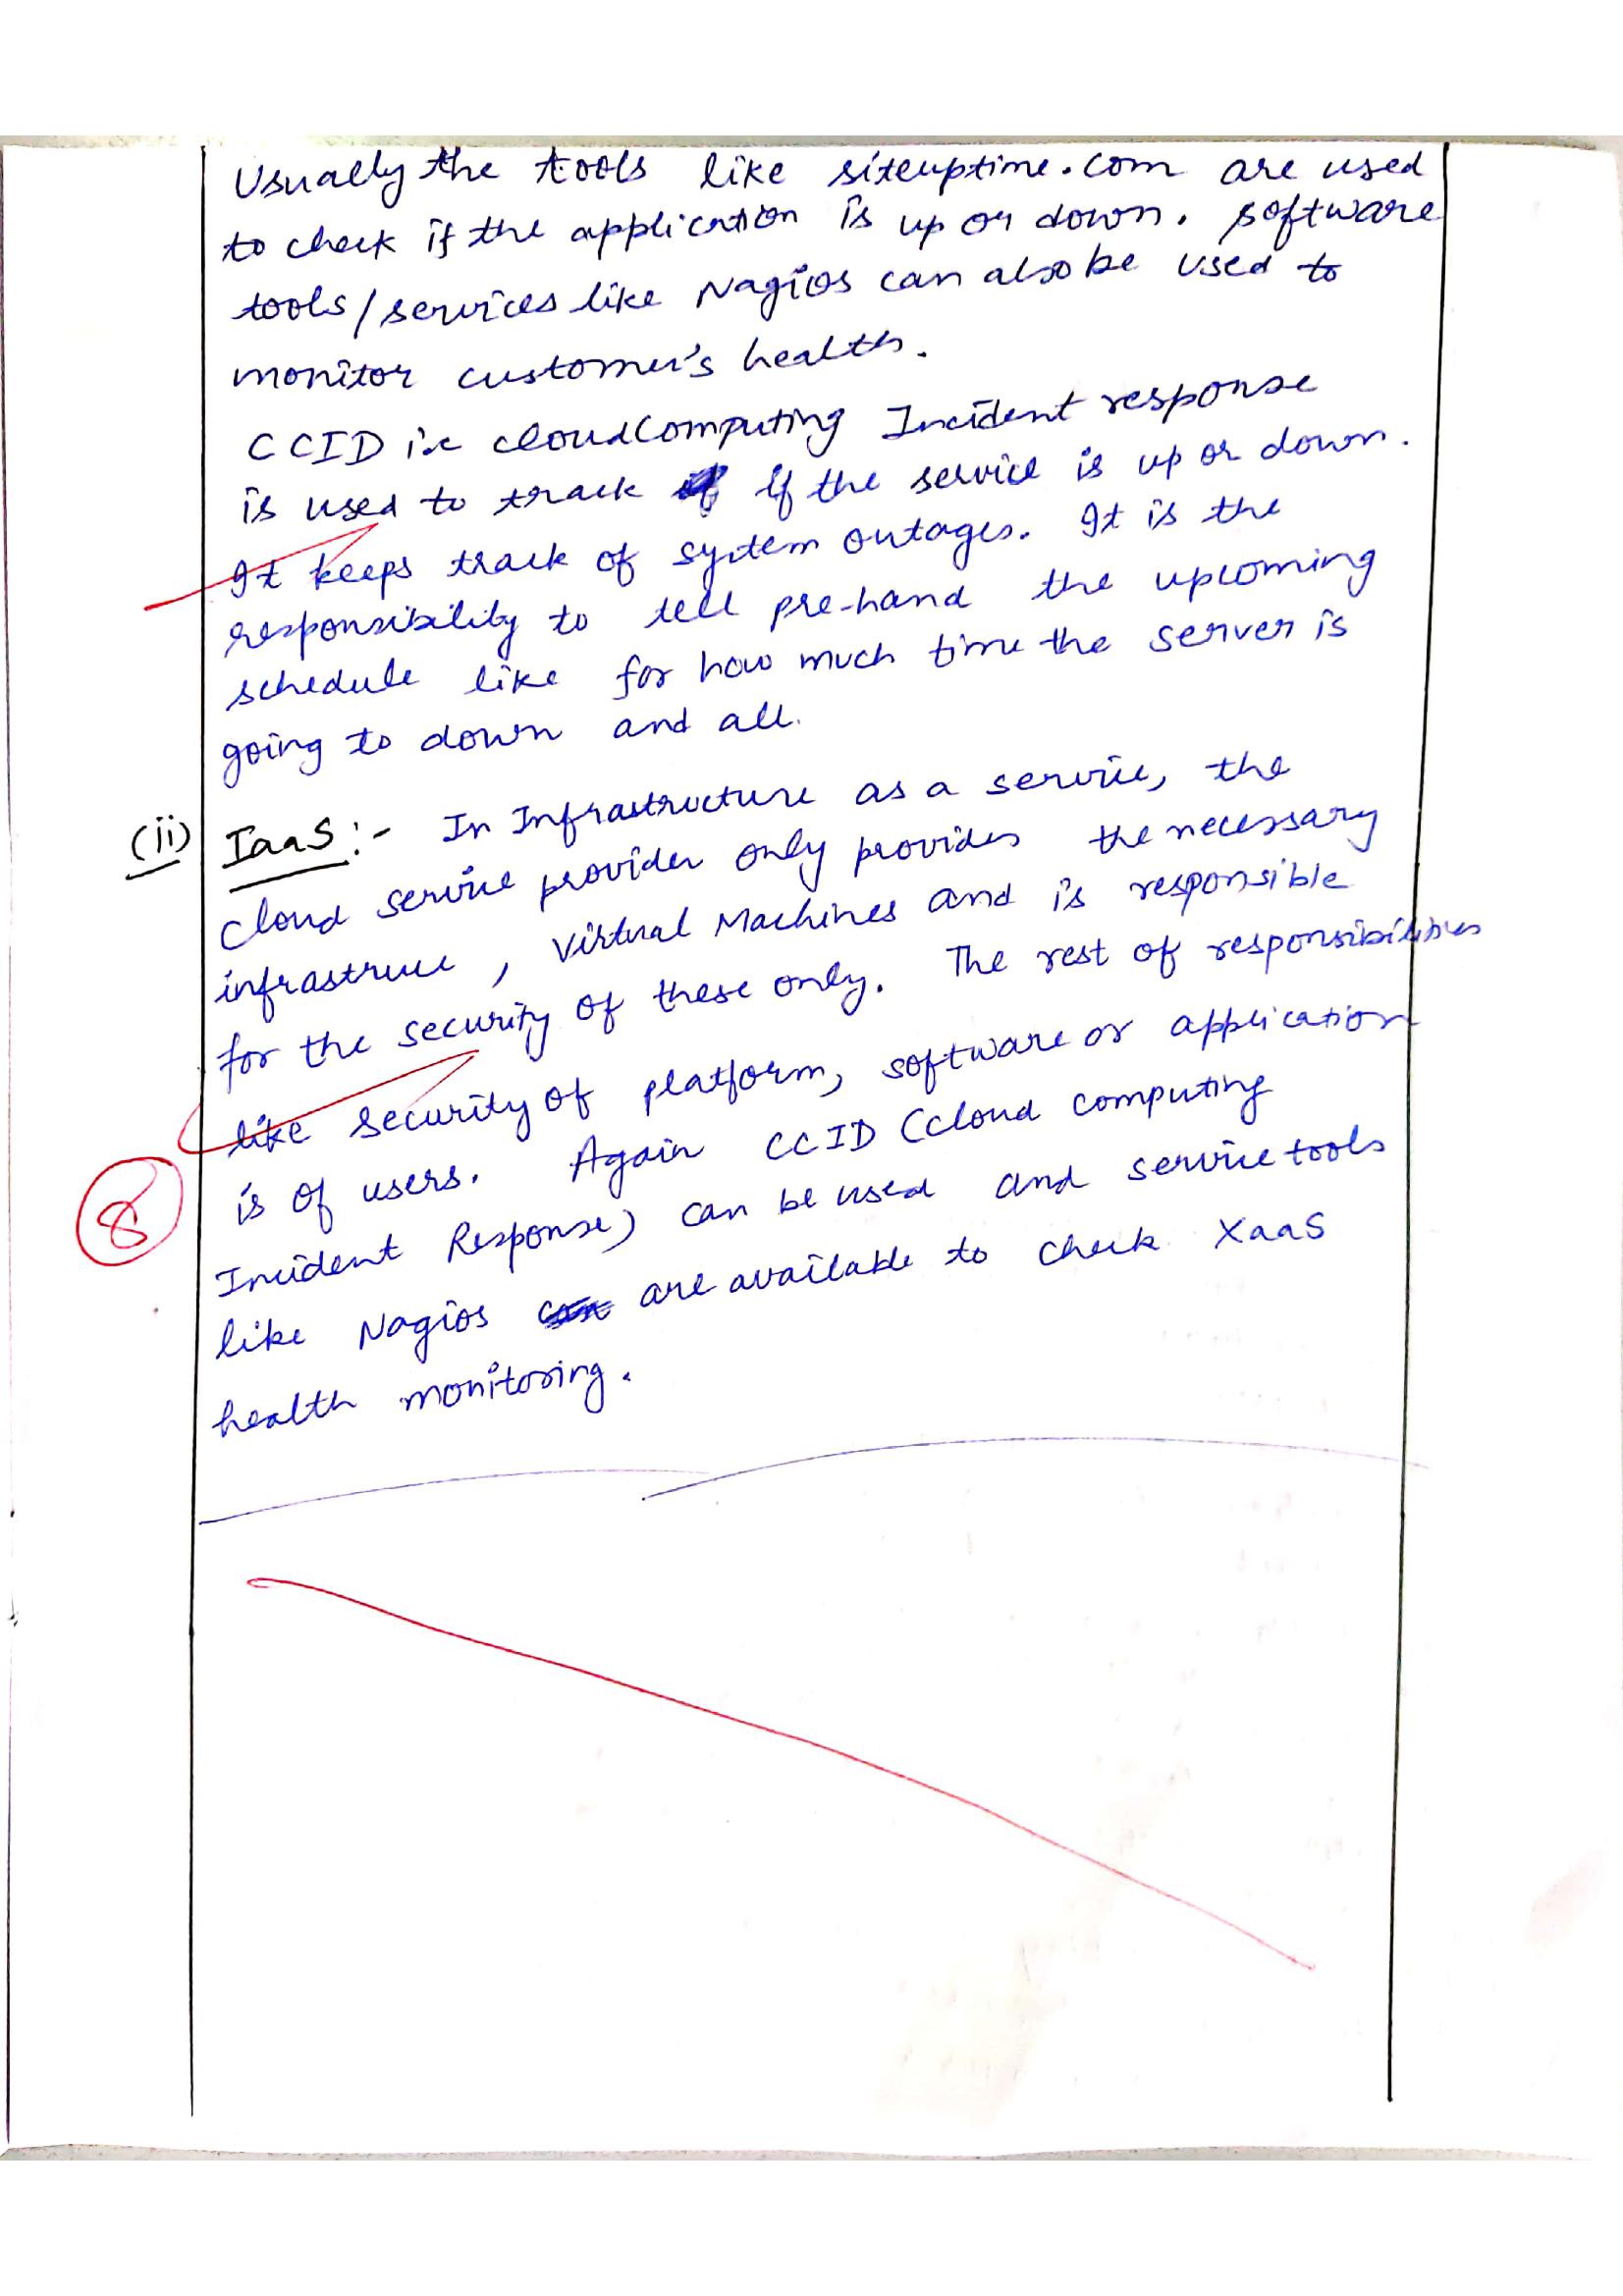 Usually the tools like siteuptime.com are used
to check if the application is up or down. software
tools/services like Nagios can also be used to
monitor customer's health.
CCID i.e cloudComputing Incident response
is used to track if the service is up or down.
It keeps track of system outages. It is the
responsibility to tell pre-hand the upcoming
schedule like for how much time the server is
going to down and all.
(ii) IaaS:- In Infrastructure as a service, the
cloud service provider only provides the necessary
infrastruce, Virtual Machines and is responsible
for the security of these only. The rest of responsibilities
like security of platform, software or application
is of users. Again CCID (cloud computing
8
Incident Response) can be used and service tools
like Nagios are available to check XaaS
health monitoring.